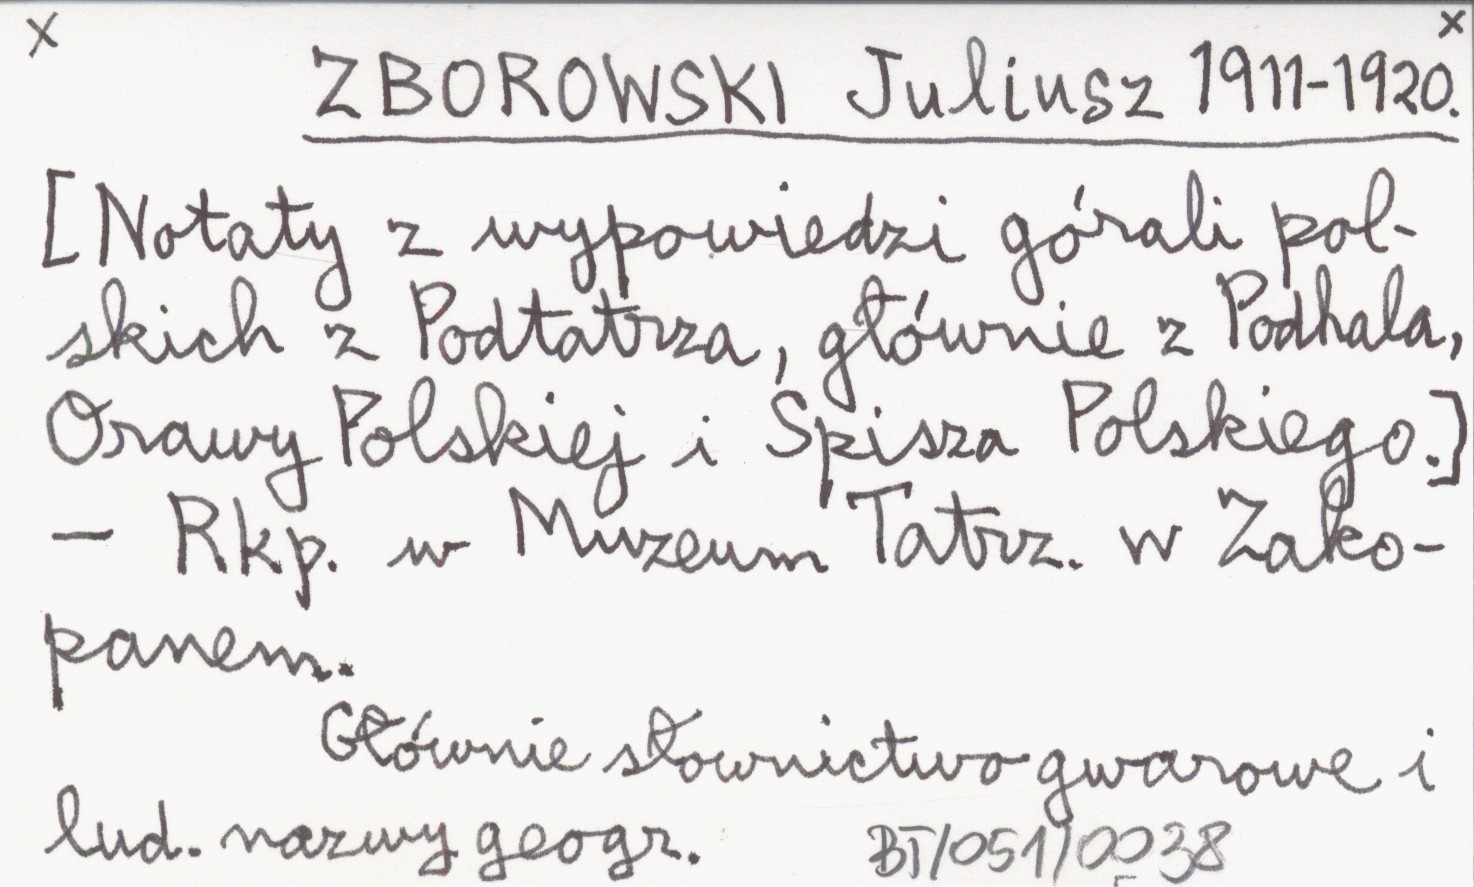 x x
ZBOROWSKI Juliusz 1911-1920.
[Notaty z wypowiedzi górali pol-
skich z Podtatrza, głównie z Podhala,
Orawy Polskiej i Spisza Polskiego.]
— Rkp. w Muzeum Tatrz. w Zako-
panem.
Głównie słownictwo gwarowe i
lud. nazwy geogr. BT/051/0038